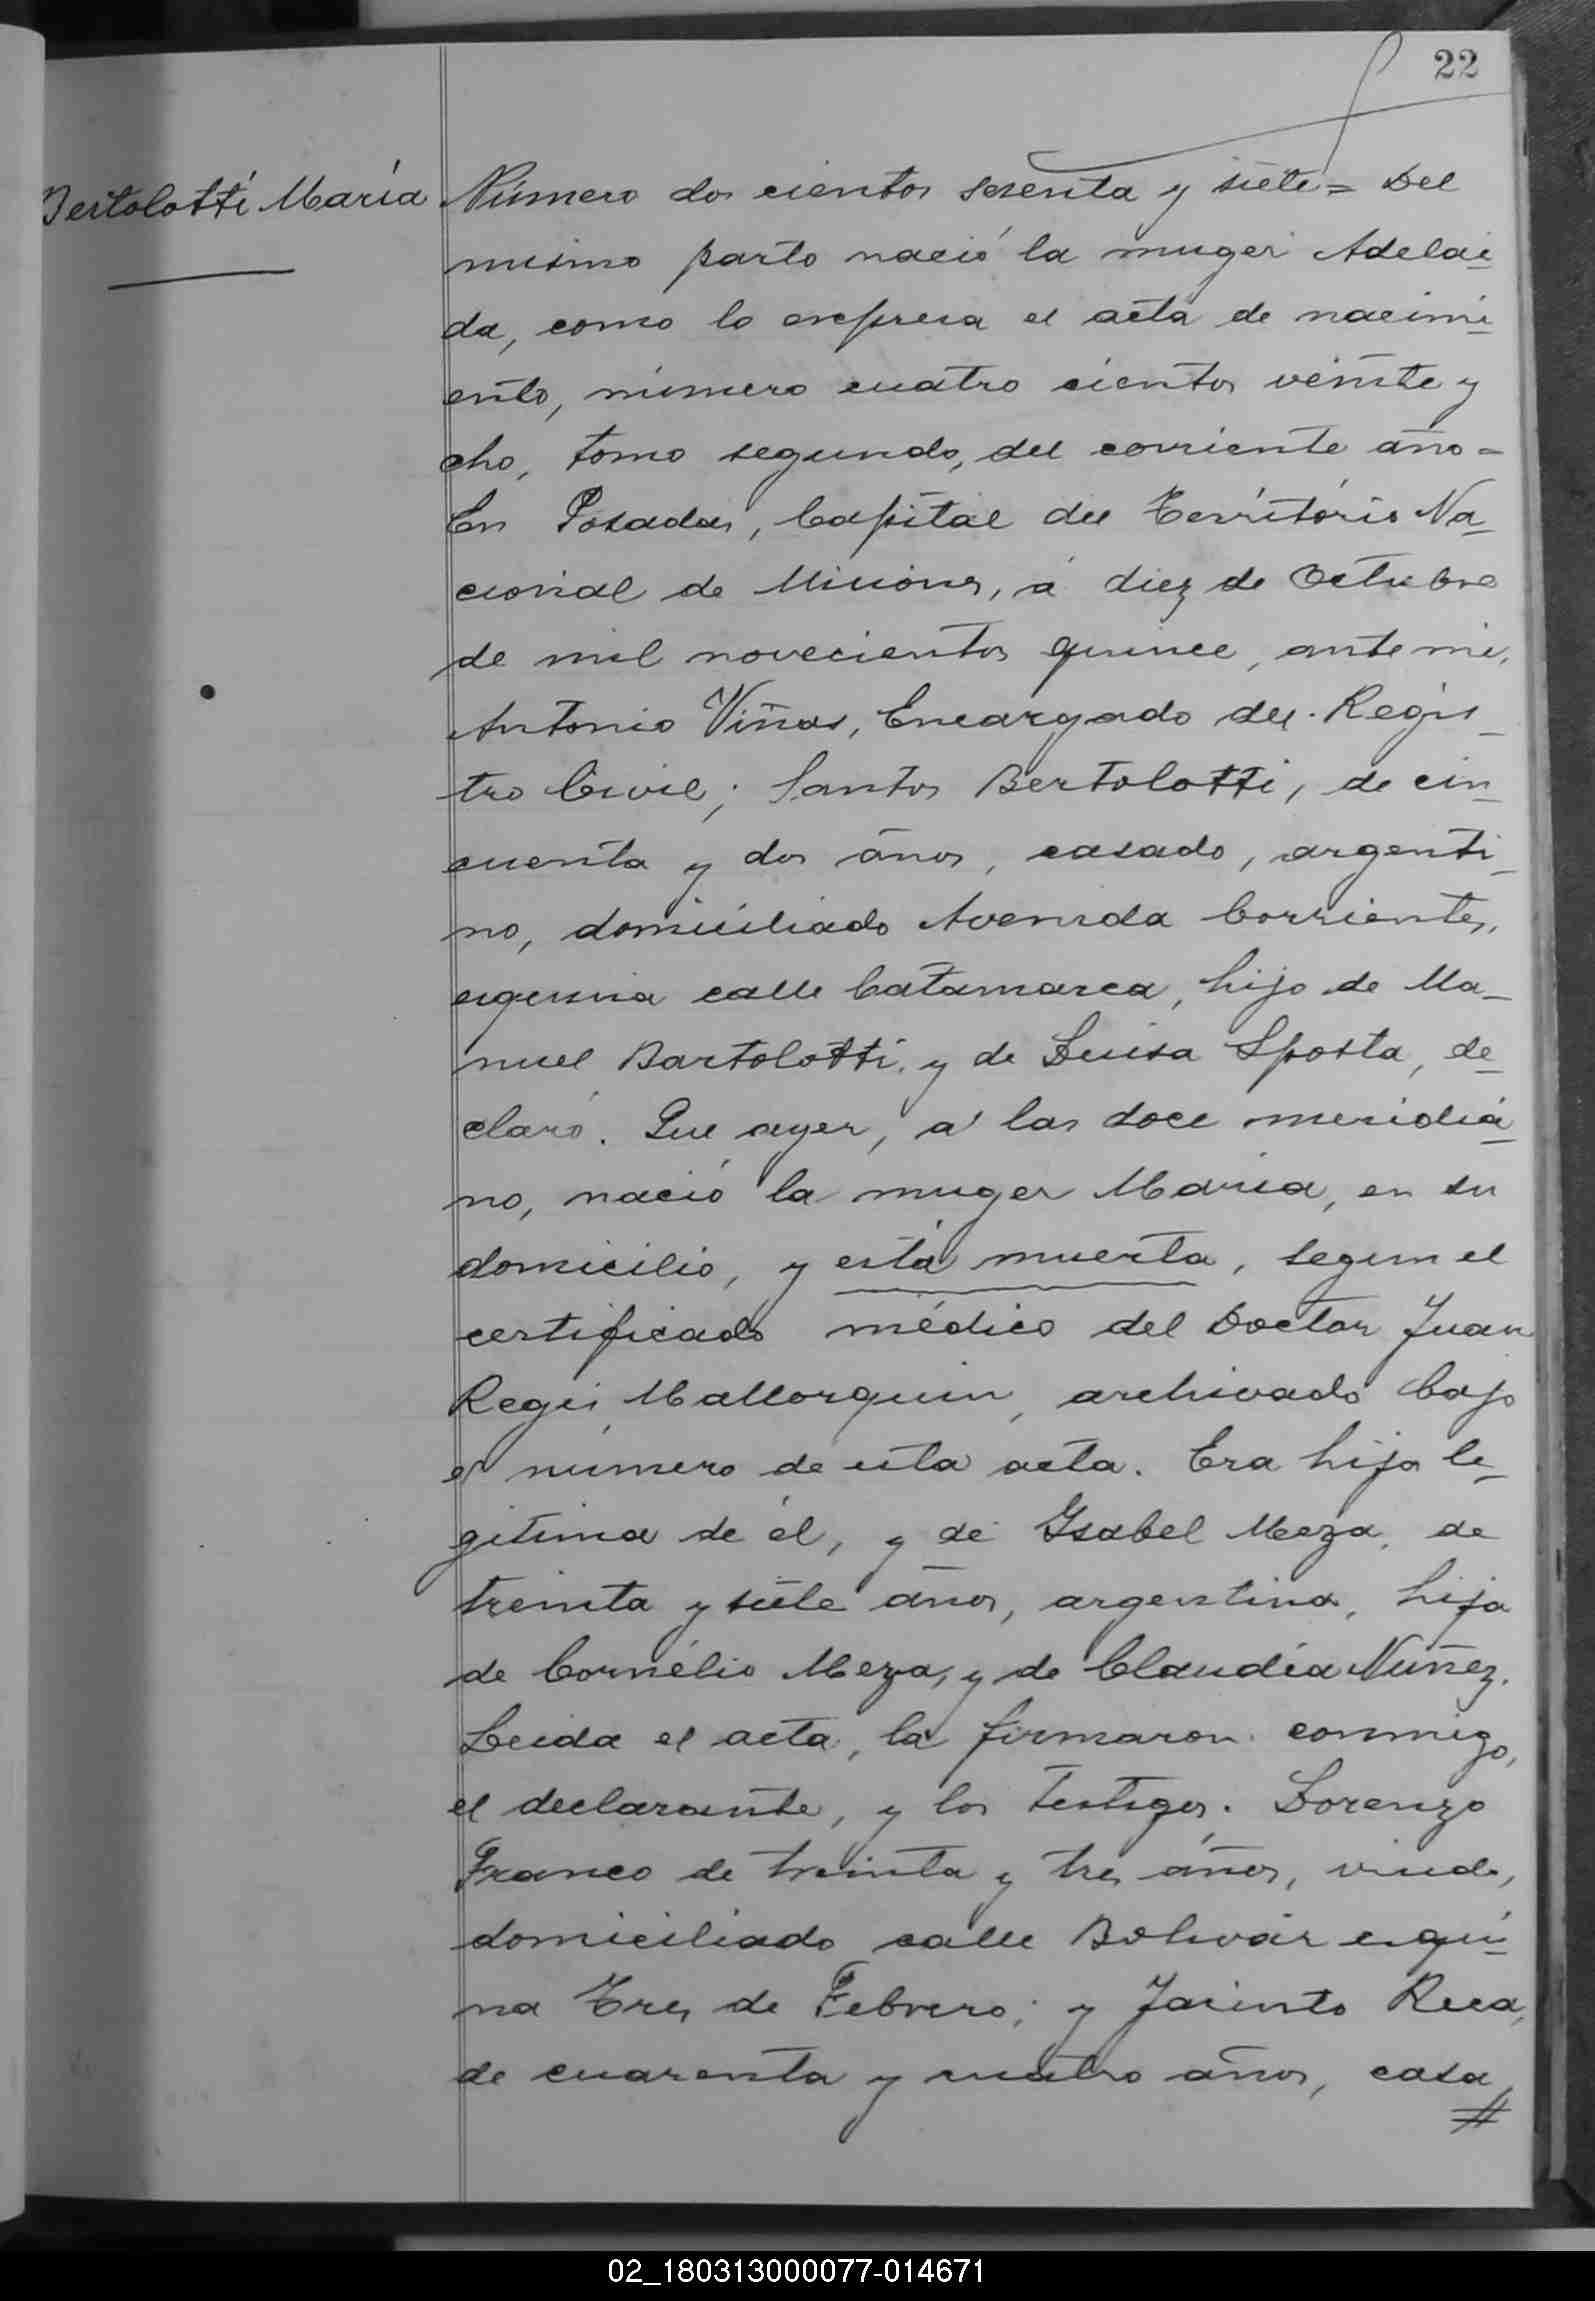 22
Bertolotti María
Número dos cientos sesenta y siete = Del
mismo parto nació la muger Adelai-
da, como lo expresa el acta de nacimi-
ento, número cuatro cientos veinte y
cho, tomo segundo, del corriente año =
En Posadas, Capital del Territorio Na-
cional de Misiones, á diez de Octubre
de mil novecientos quince, ante mi,
Antonio Viñas, Encargado del Regis-
tro Civil; Santos Bertolotti, de cin-
cuenta y dos años, casado, argenti-
no, domiciliado Avenida Corrientes,
esquina calle Catamarca, hijo de Ma-
nuel Bartolotti, y de Luisa Sposta, de-
claró. Que ayer, a las doce meridia-
no, nació la muger María, en su
domicilio, y está muerta, segun el
certificado médico del Doctor Juan
Regis Mallorquin, archivado bajo
el número de esta acta. Era hija le-
gitima de él, y de Isabel Meza, de
treinta y siete años, argentina, hija
de Cornélio Meza, y de Claudia Nuñez.
Leida el acta, la firmaron conmigo,
el declarante, y los testigos. Lorenzo
Franco de treinta y tres años, viudo,
domiciliado calle Bolivar esqui-
na Tres de Febrero; y Jacinto
de cuarenta y cuatro años, casa
#
02_180313000077-014671